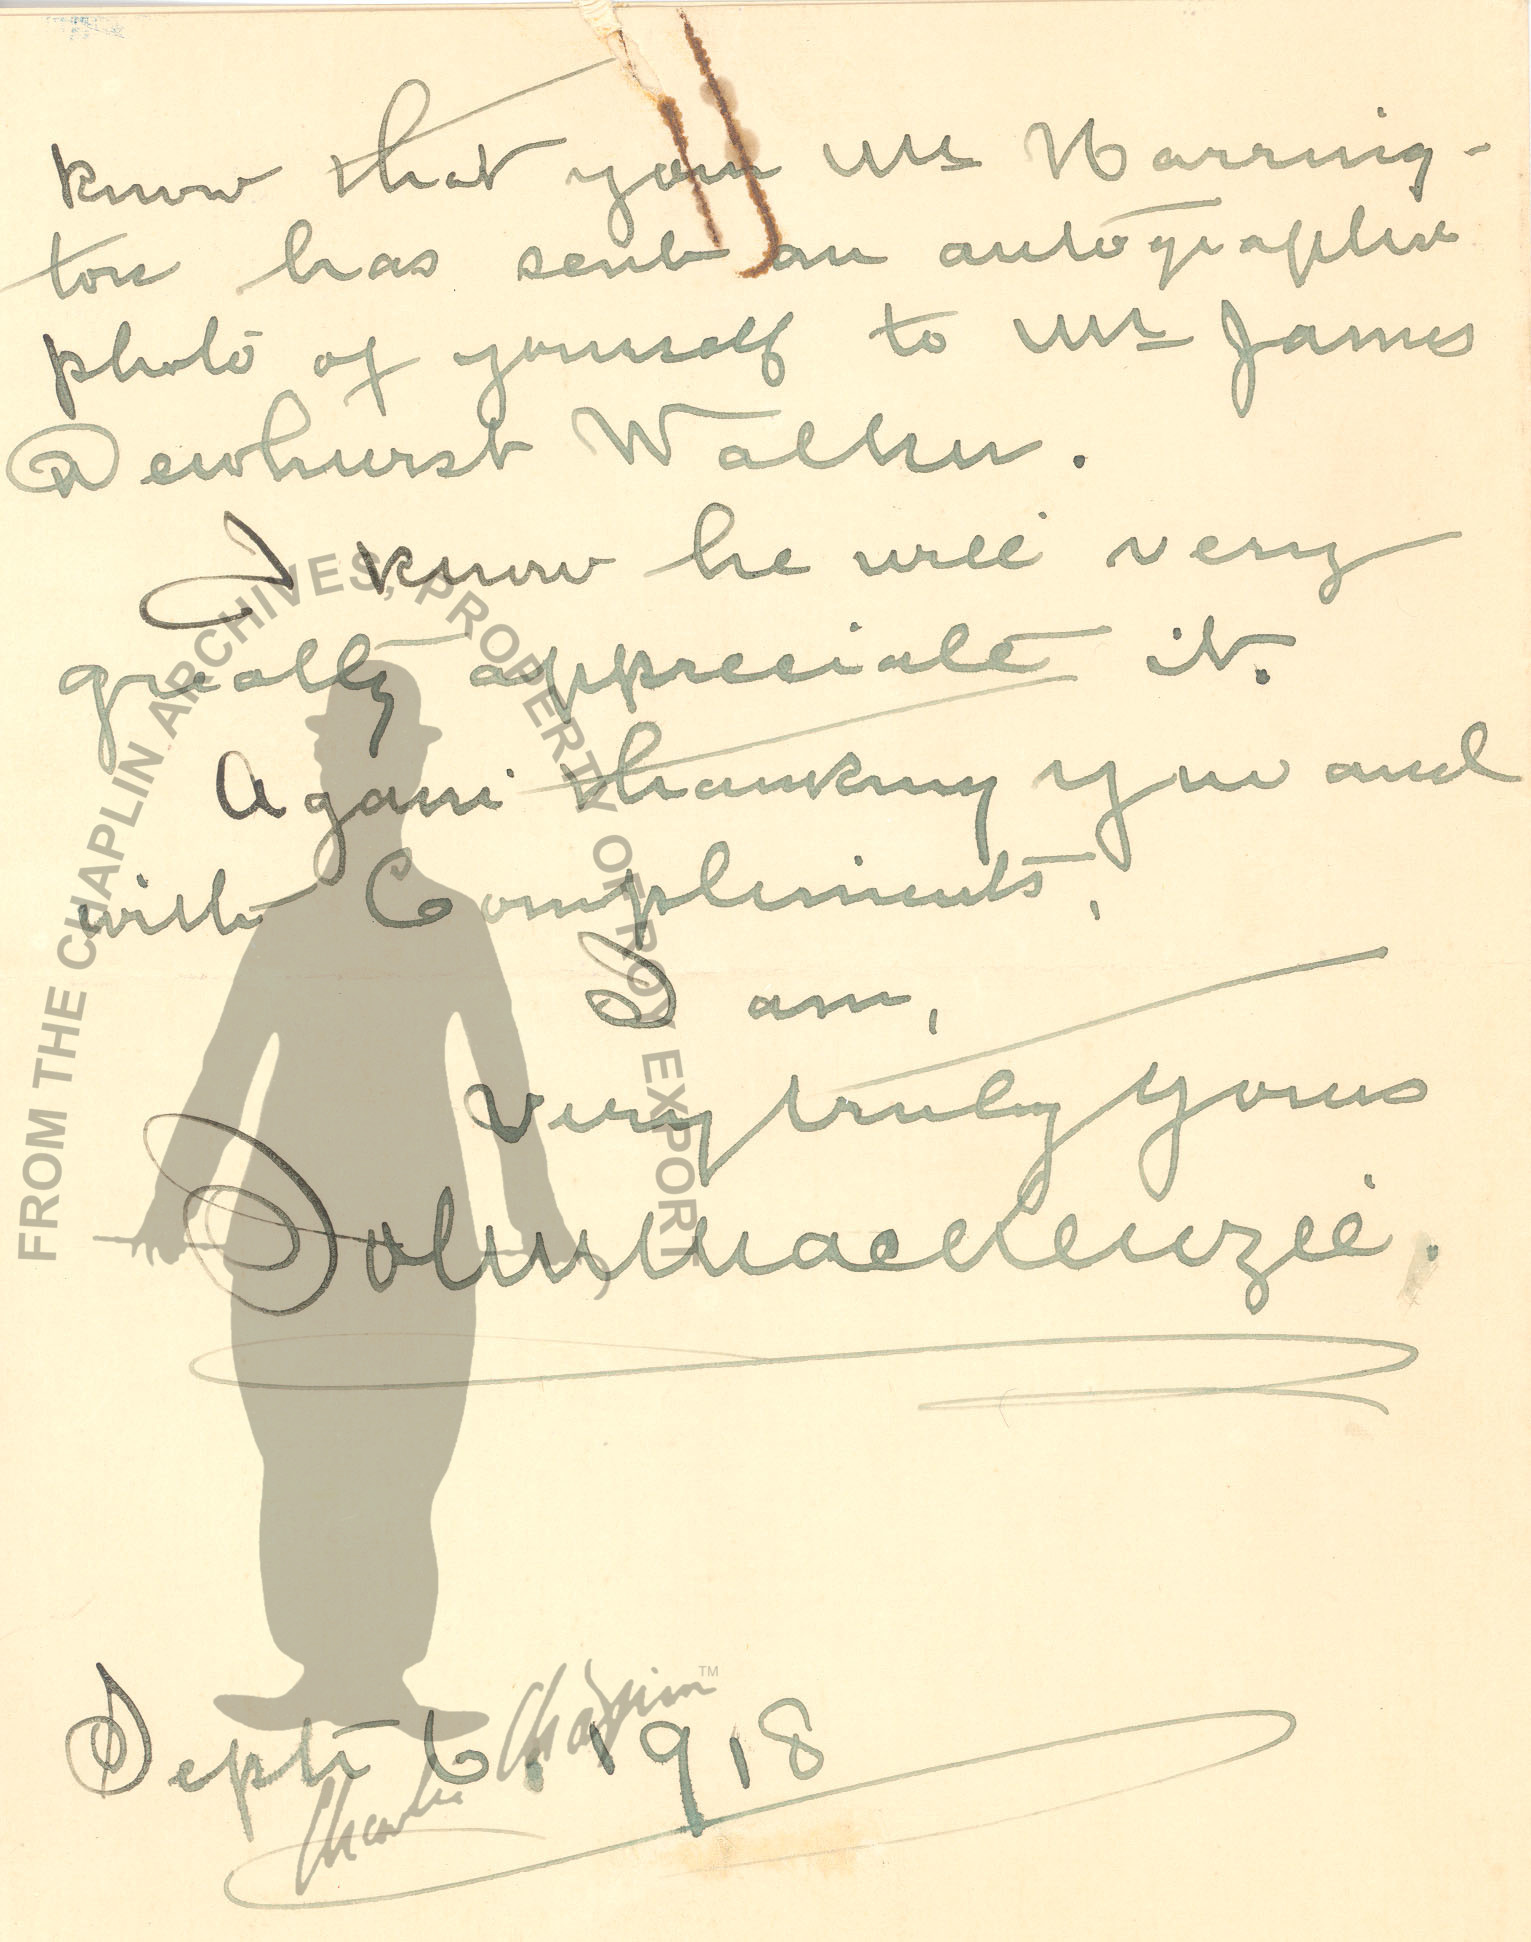 know that your Mr Harring-
ton has sent an autographed
photo of yourself to Mr James
Dewhurst Walker.
I know he will very
greatly appreciate it.
Again thanking you and
with Compliments,
I am,
Very truly yours
John MacKenzie.
Sept 6, 1918
FROM THE CHAPLIN ARCHIVES, PROPERTY OF ROY EXPORT
Charlie Chaplin™